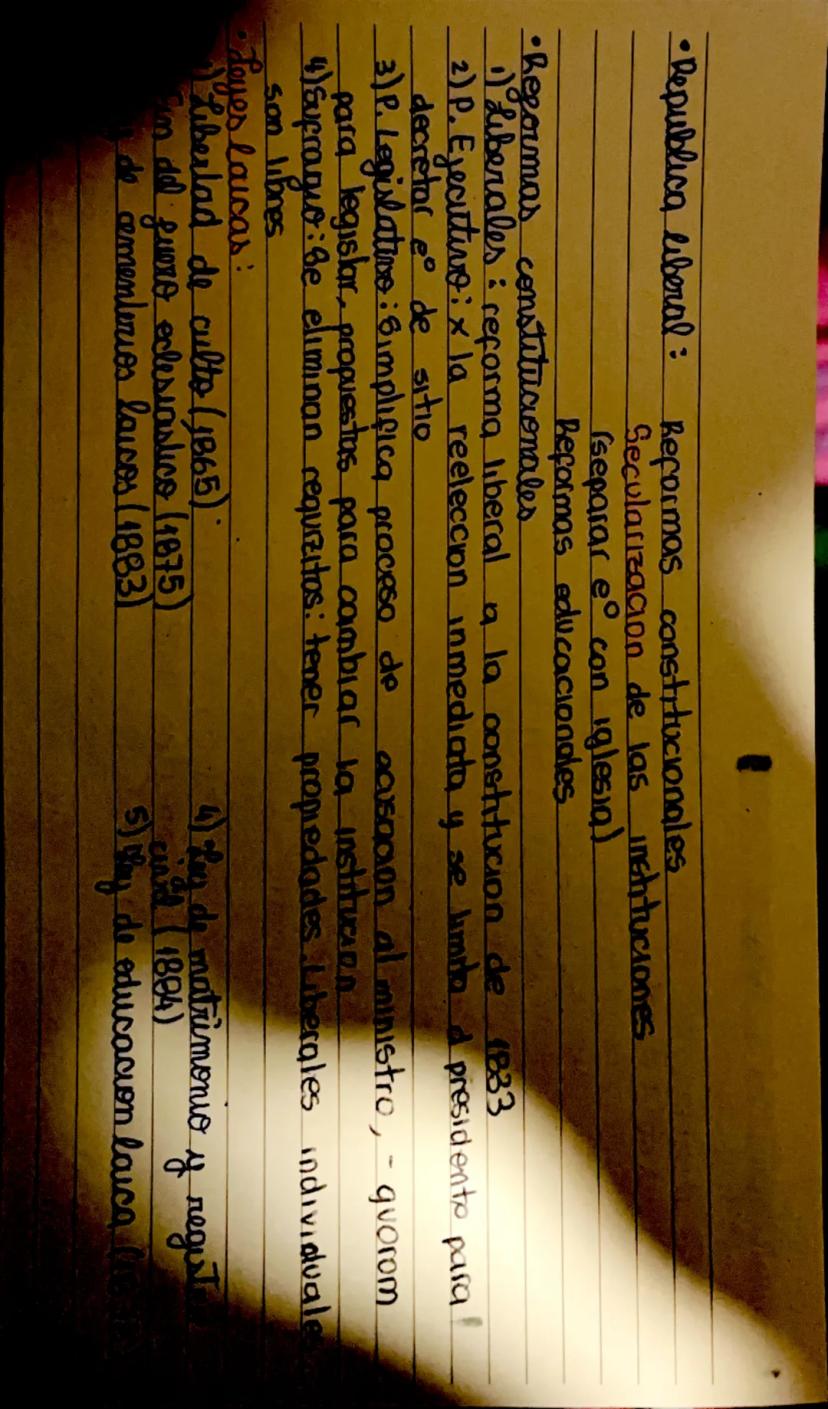 • Republica liberal: Reformas constitucionales
Secularizacion de las instituciones
(separar e° con iglesia)
Reformas educacionales
• Reformas constitucionales
1) Liberales: reforma liberal a la constitucion de 1833
2) P. Ejecutivo: x la reeleccion inmediata y se limita al presidente para
decretar e° de sitio
3) P. Legislativo: Simplifica proceso de acusacion al ministro, - quorom
para legislar, propuestas para cambiar la institucion
4) Sufragio: Se eliminan requizitos: tener propiedades. Liberales individuales
son libres
• Leyes laicas:
1) Libertad de culto (1865).
del fuero eclesiastico (1875)
de cementerios laicos (1883)
4) Ley de matrimonio y
civil (1884)
5) Ley de educacion laica